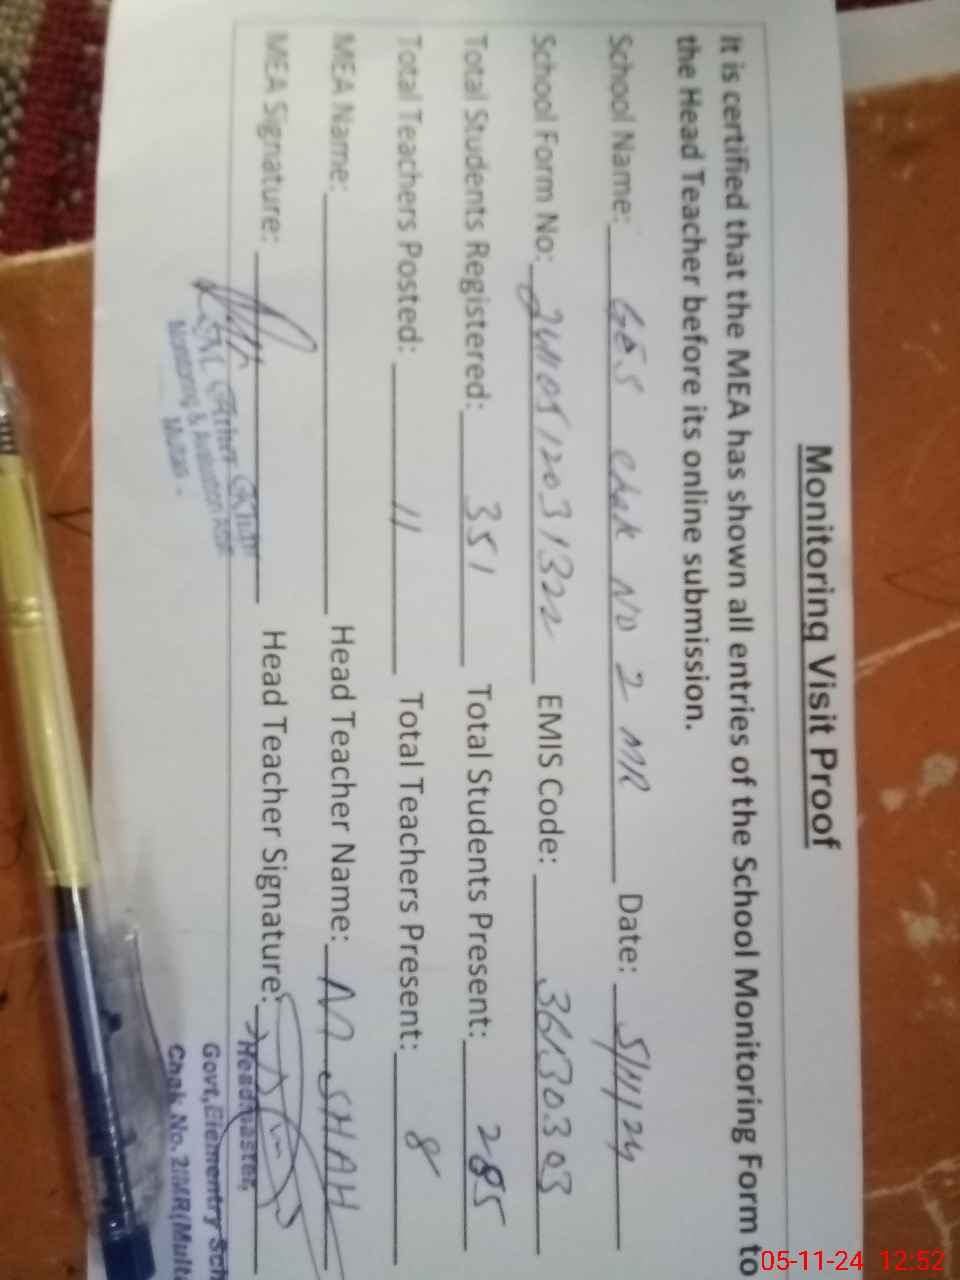 Monitoring Visit Proof
It is certified that the MEA has shown all entries of the School Monitoring Form to
the Head Teacher before its online submission.
School Name: GES chak NO 2 MR Date: 5/11/24
School Form No: EMIS Code: 36130303
Total Students Registered: 351 Total Students Present: 285
Total Teachers Posted: 11 Total Teachers Present: 8
MEA Name: Head Teacher Name: M. SHAH
MEA Signature: Head Teacher Signature:
Monitoring & Multan
Headmaster,
Govt, Elementry Sch
Chak No. 2/MR(Mult
05-11-24 12:52